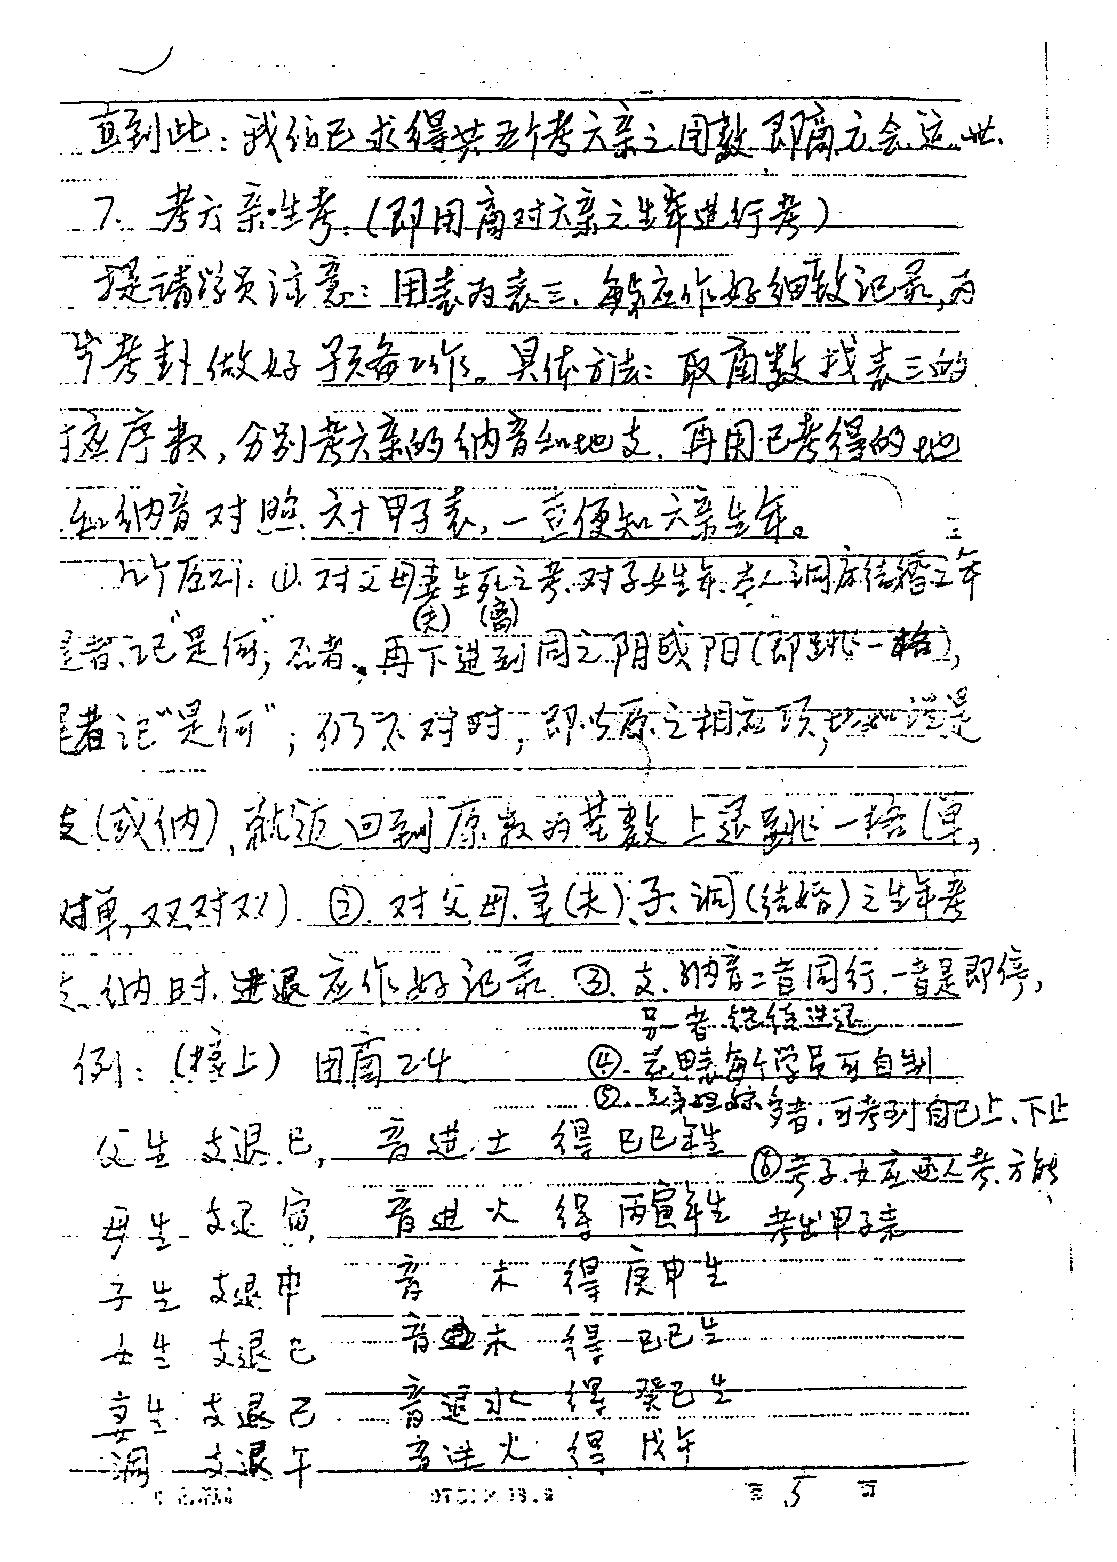 直到此：我们已求得共五个考六亲之因数即商元会运世.
7. 考六亲生考.(即用商对六亲之生年进行考)
提请学员注意：用表为表三.每亲应作好细致记录,为
步考卦做好预备工作。具体方法：取商数找表三的
应序数,分别考六亲的纳音和地支.再用已考得的地
和纳音对照六十甲子表,一查便知六亲生年。
几个原则：①.对父母妻生死之考.对子女生年.本人洞房结婚之年
(夫) (离)
是者.记"是何",否者.再下进到同之阴或阳(即跳一格),
是者记"是何"；仍不对时,即以原之相应项,
支(或纳),就返回到原数为基数上退跳一格(单,
对单,双双对双). ②.对父母.妻(夫).子.洞(结婚)之生年考
支.纳时.进退应作好记录.③.支.纳音二者同行.一者是即停,
另一者继续进退
例：(接上) 因商24
④.花甲表每个学员可自制
⑤.兄弟姐妹多者.可考到自己上、下止
父生 支退.巳, 音进.土 得 己巳年生
⑥考子.女应逐人考.方能
母生 支退 寅, 音进 火 得 丙寅年生 考出甲子表
子生 支退申 音 木 得 庚申生
女生 支退巳 音进木 得 己巳生
妻生 支退巳 音退水 得 癸巳生
洞 支退午 音进火 得 戊午
第 5 页